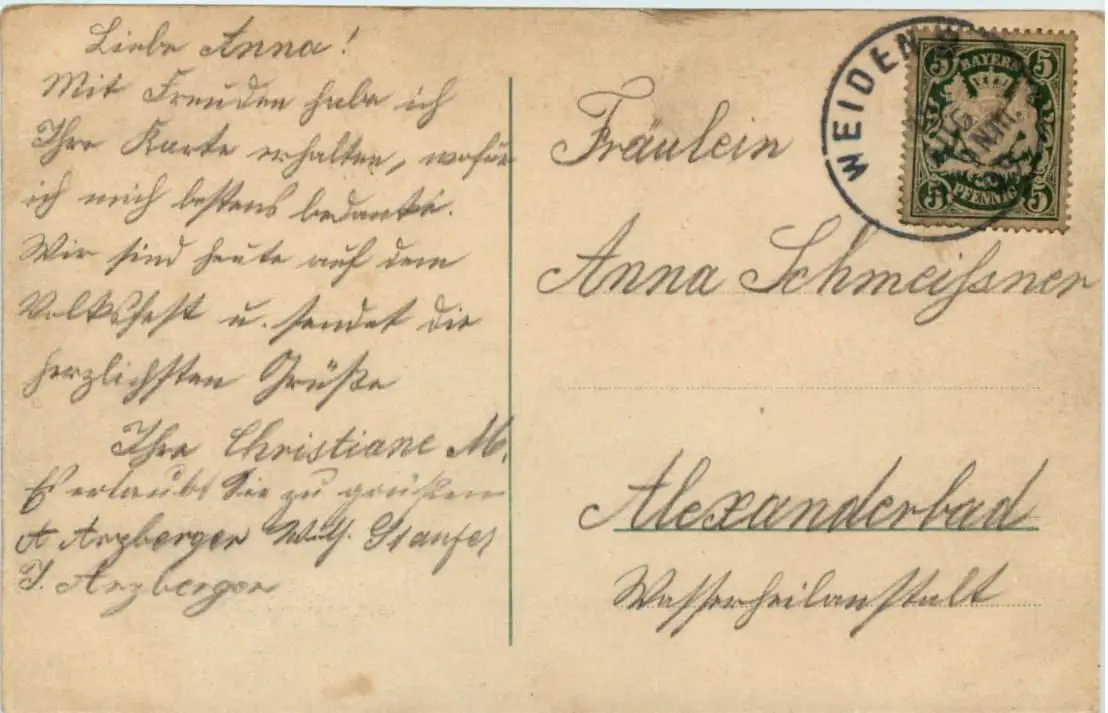 Liebe Anna!
Mit Freuden habe ich
Ihre Karte erhalten, wofür
ich mich bestens bedanke.
Wir sind heute auf dem
Volksfest u. sendet die
herzlichsten Grüße
Ihre Christiane M.
Es erlaubt Sie zu grüßen
A Arzberger
J. Arzberger
Fräulein
Anna Schmeißner
Alexanderbad
Wasserheilanstalt
WEIDEN
BAYERN
5 5
5 5
PFENNIG